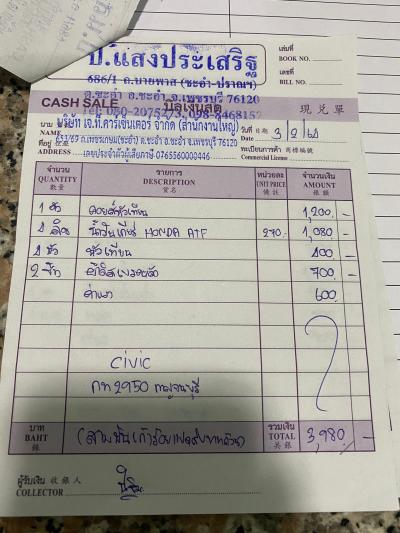 ป.แสงประเสริฐ
686/1 ถ.นายพาส (ชะอำ-ปราณฯ)
ต.ชะอำ อ.ชะอำ จ.เพชรบุรี 76120
เล่มที่
BOOK NO.
เลขที่
BILL NO.
CASH SALE บิลเงินสด 現兑單
นาม
NAME บริษัท เจ.ที.คาร์เซ็นเตอร์ จำกัด (สำนักงานใหญ่)
วันที่ 日期
Date 3/2/60
ที่อยู่ 住址
ADDRESS
อ.ชะอำ จ.เพชรบุรี 76120
เลขประจำตัวผู้เสียภาษี 0765560000446
ทะเบียนการค้า 商標編號
Commercial License
จำนวน รายการ หน่วยละ จำนวนเงิน
QUANTITY DESCRIPTION UNIT PRICE AMOUNT
數量 貨名 備註 銀額
1 หัว คอยล์หัวเทียน 1,200.-
4 ลิตร น้ำมันเกียร์ HONDA ATF 270.- 1,080.-
4 หัว หัวเทียน 400.-
700.-
ค่าแรง 600.
civic
กท 2950 กาญจนบุรี
บาท รวมเงิน
BAHT TOTAL 3,980.-
銖 共銀
(สามพันเก้าร้อยแปดสิบบาทถ้วน)
ผู้รับเงิน 收銀人
COLLECTOR